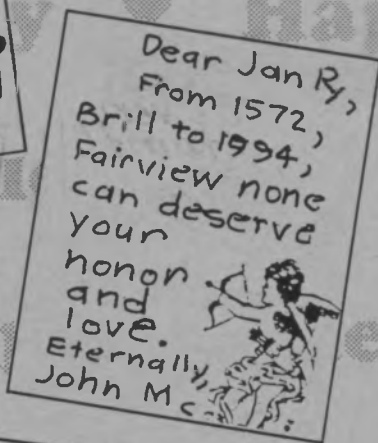 Dear Jan Ry,
From 1572,
Brill to 1994,
Fairview none
can deserve
your
honor
and
love.
Eternally,
John Mc